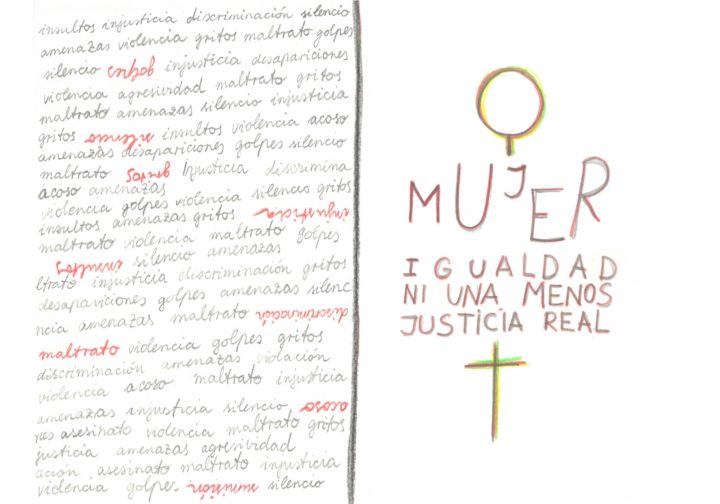 insultos injusticia discriminación silencio
amenazas violencia gritos maltrato golpes
silencio golpes injusticia desapariciones
violencia agresividad maltrato gritos
maltrato amenazas silencio injusticia
gritos silencio insultos violencia acoso
amenazas desapariciones golpes silencio
maltrato gritos injusticia discrimina
acoso amenazas
violencia golpes violencia silencio gritos
insultos amenazas gritos injusticia
maltrato violencia maltrato golpes
insultos silencio amenazas
ltrato injusticia discriminación gritos
desapariciones golpes amenazas silenc
ncia amenazas maltrato discriminación
maltrato violencia golpes gritos
discriminación amenazas violación
violencia acoso maltrato injusticia
amenazas injusticia silencio acoso
pes asesinato violencia maltrato gritos
justicia amenazas agresividad
ación asesinato maltrato injusticia
violencia golpes silencio
MUJER
IGUALDAD
NI UNA MENOS
JUSTICIA REAL